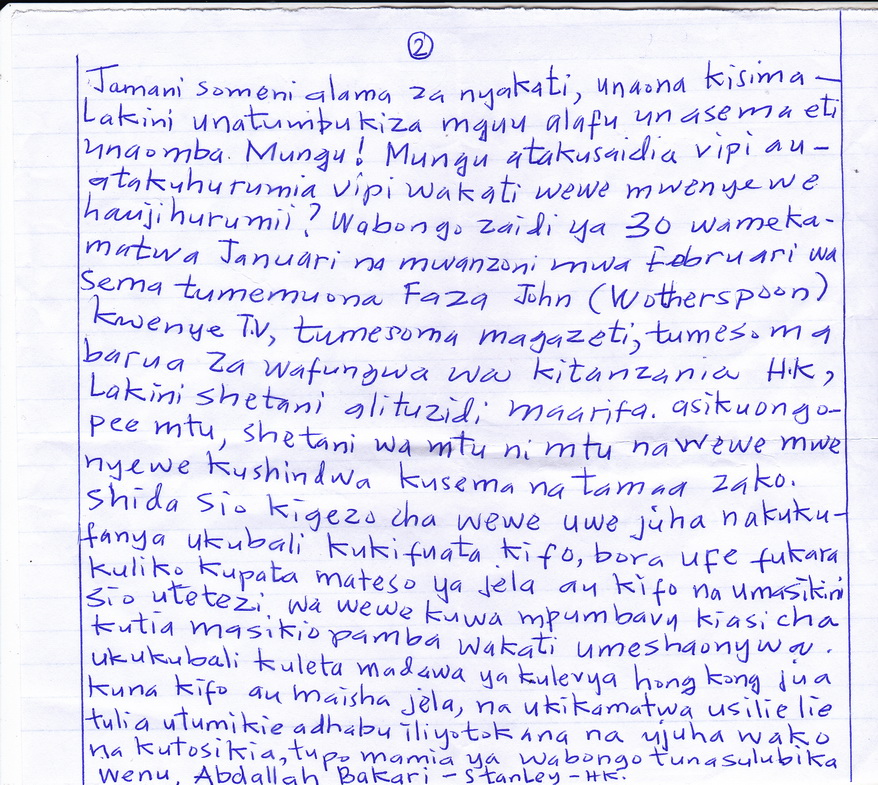 2
Jamani someni alama za nyakati, unaona kisima –
Lakini unatumbukiza mguu alafu unasema eti
unaomba. Mungu! Mungu atakusaidia vipi au –
atakuhurumia vipi wakati wewe mwenyewe
haujihurumii? Wabongo zaidi ya 30 wameka-
matwa Januari na mwanzoni mwa Februari wa
sema tumemuona Faza John (Wotherspoon)
kwenye T.V, tumesoma magazeti, tumesoma
barua za wafungwa wa kitanzania H.K,
Lakini shetani alituzidi maarifa. asikuongo-
pee mtu, shetani wa mtu ni mtu nawewe mwe
nyewe kushindwa kusema na tamaa zako.
shida sio kigezo cha wewe uwe juha nakuku-
fanya ukubali kukifuata kifo, bora ufe fukara
kuliko kupata mateso ya jela au kifo na umasikini
sio utetezi wa wewe kuwa mpumbavu kiasi cha
kutia masikio pamba wakati umeshaonywa.
ukukubali kuleta madawa ya kulevya hong kong jua
kuna kifo au maisha jela, na ukikamatwa usilie lie
tulia utumikie adhabu iliyotokana na ujuha wako
na kutosikia, tupo mamia ya wabongo tunasulubika
wenu, Abdallah Bakari – Stanley – HK.